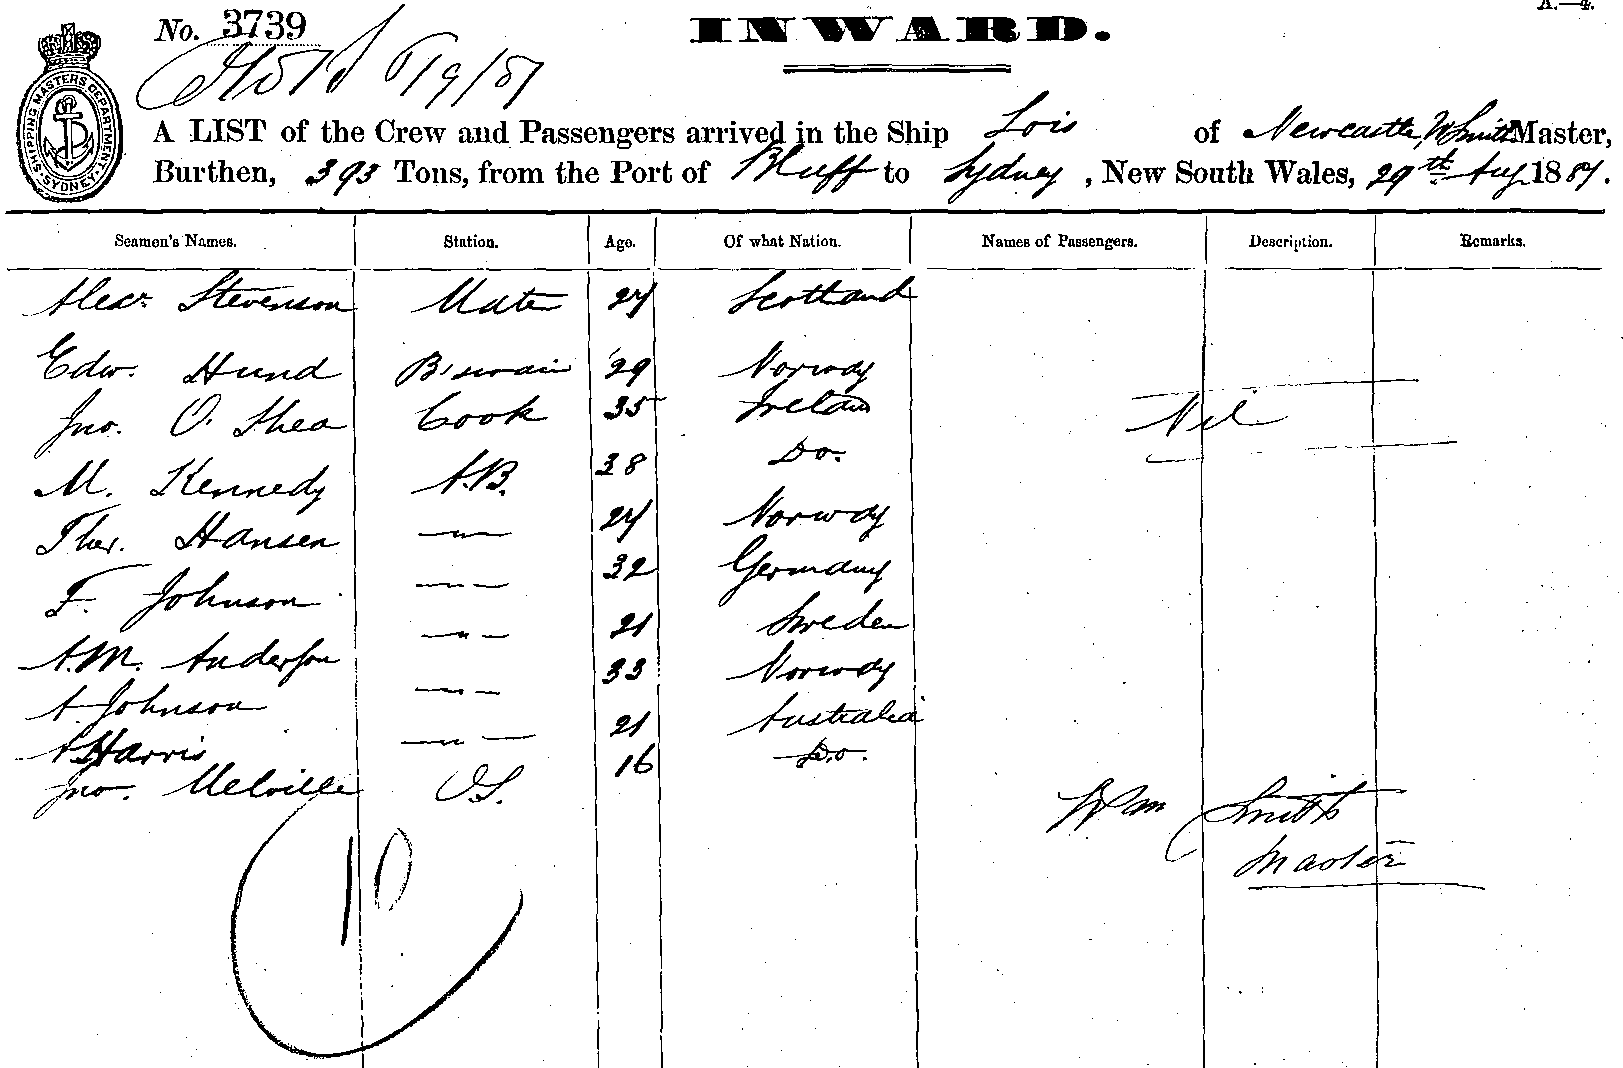 A.—4.
No. 3739 INWARD.
SHIPPING MASTERS DEPARTMENT SYDNEY
A LIST of the Crew and Passengers arrived in the Ship Lois of Newcastle, W Smith Master,
Burthen, 393 Tons, from the Port of Bluff to Sydney, New South Wales, 29th Aug 1887.
Seamen's Names. Station. Age. Of what Nation. Names of Passengers. Description. Remarks.
Alexr. Stevenson Mate 27 Scotland
Edw. Hund B'swain 29 Norway
Jno. O. Shea Cook 35 Ireland Nil
M. Kennedy A.B. 38 Do.
Ther. Hansen —"— 27 Norway
F. Johnson —"— 32 Germany
A.M. Anderson —"— 21 Sweden
A. Johnson —"— 33 Norway
A Harris —"— 21 Australia
Jno. Melville O.S. 16 Do.
Wm Smith
Master
10